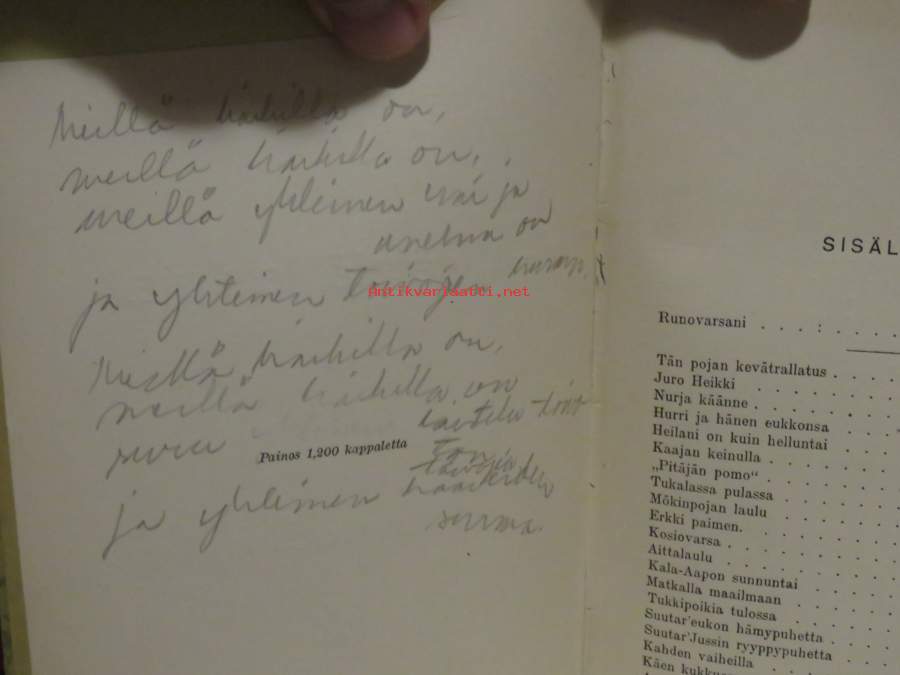 Meillä kaikilla on,
meillä kaikilla on,
meillä yhteinen
unelma on
ja yhteinen
Antikvariaatti.net
Meillä kaikilla on,
meillä kaikilla on
taistelu
Painos 1,200 kappaletta
ja yhteinen
surma
SISÄL
Runovarsani . . . : . . . .
Tän pojan kevätrallatus . . . .
Juro Heikki . . . . . .
Nurja käänne . . . . . .
Hurri ja hänen eukkonsa . . . .
Heilani on kuin helluntai . . . .
Kaajan keinulla . . . . . .
„Pitäjän pomo“ . . . . . .
Tukalassa pulassa . . . . .
Mökinpojan laulu . . . . .
Erkki paimen. . . . . . .
Kosiovarsa . . . . . . .
Aittalaulu . . . . . . .
Kala-Aapon sunnuntai . . . .
Matkalla maailmaan . . . . .
Tukkipoikia tulossa . . . . .
Suutar'eukon hämypuhetta . . . .
Suutar'Jussin ryyppypuhetta . . .
Kahden vaiheilla . . . . .
Käen